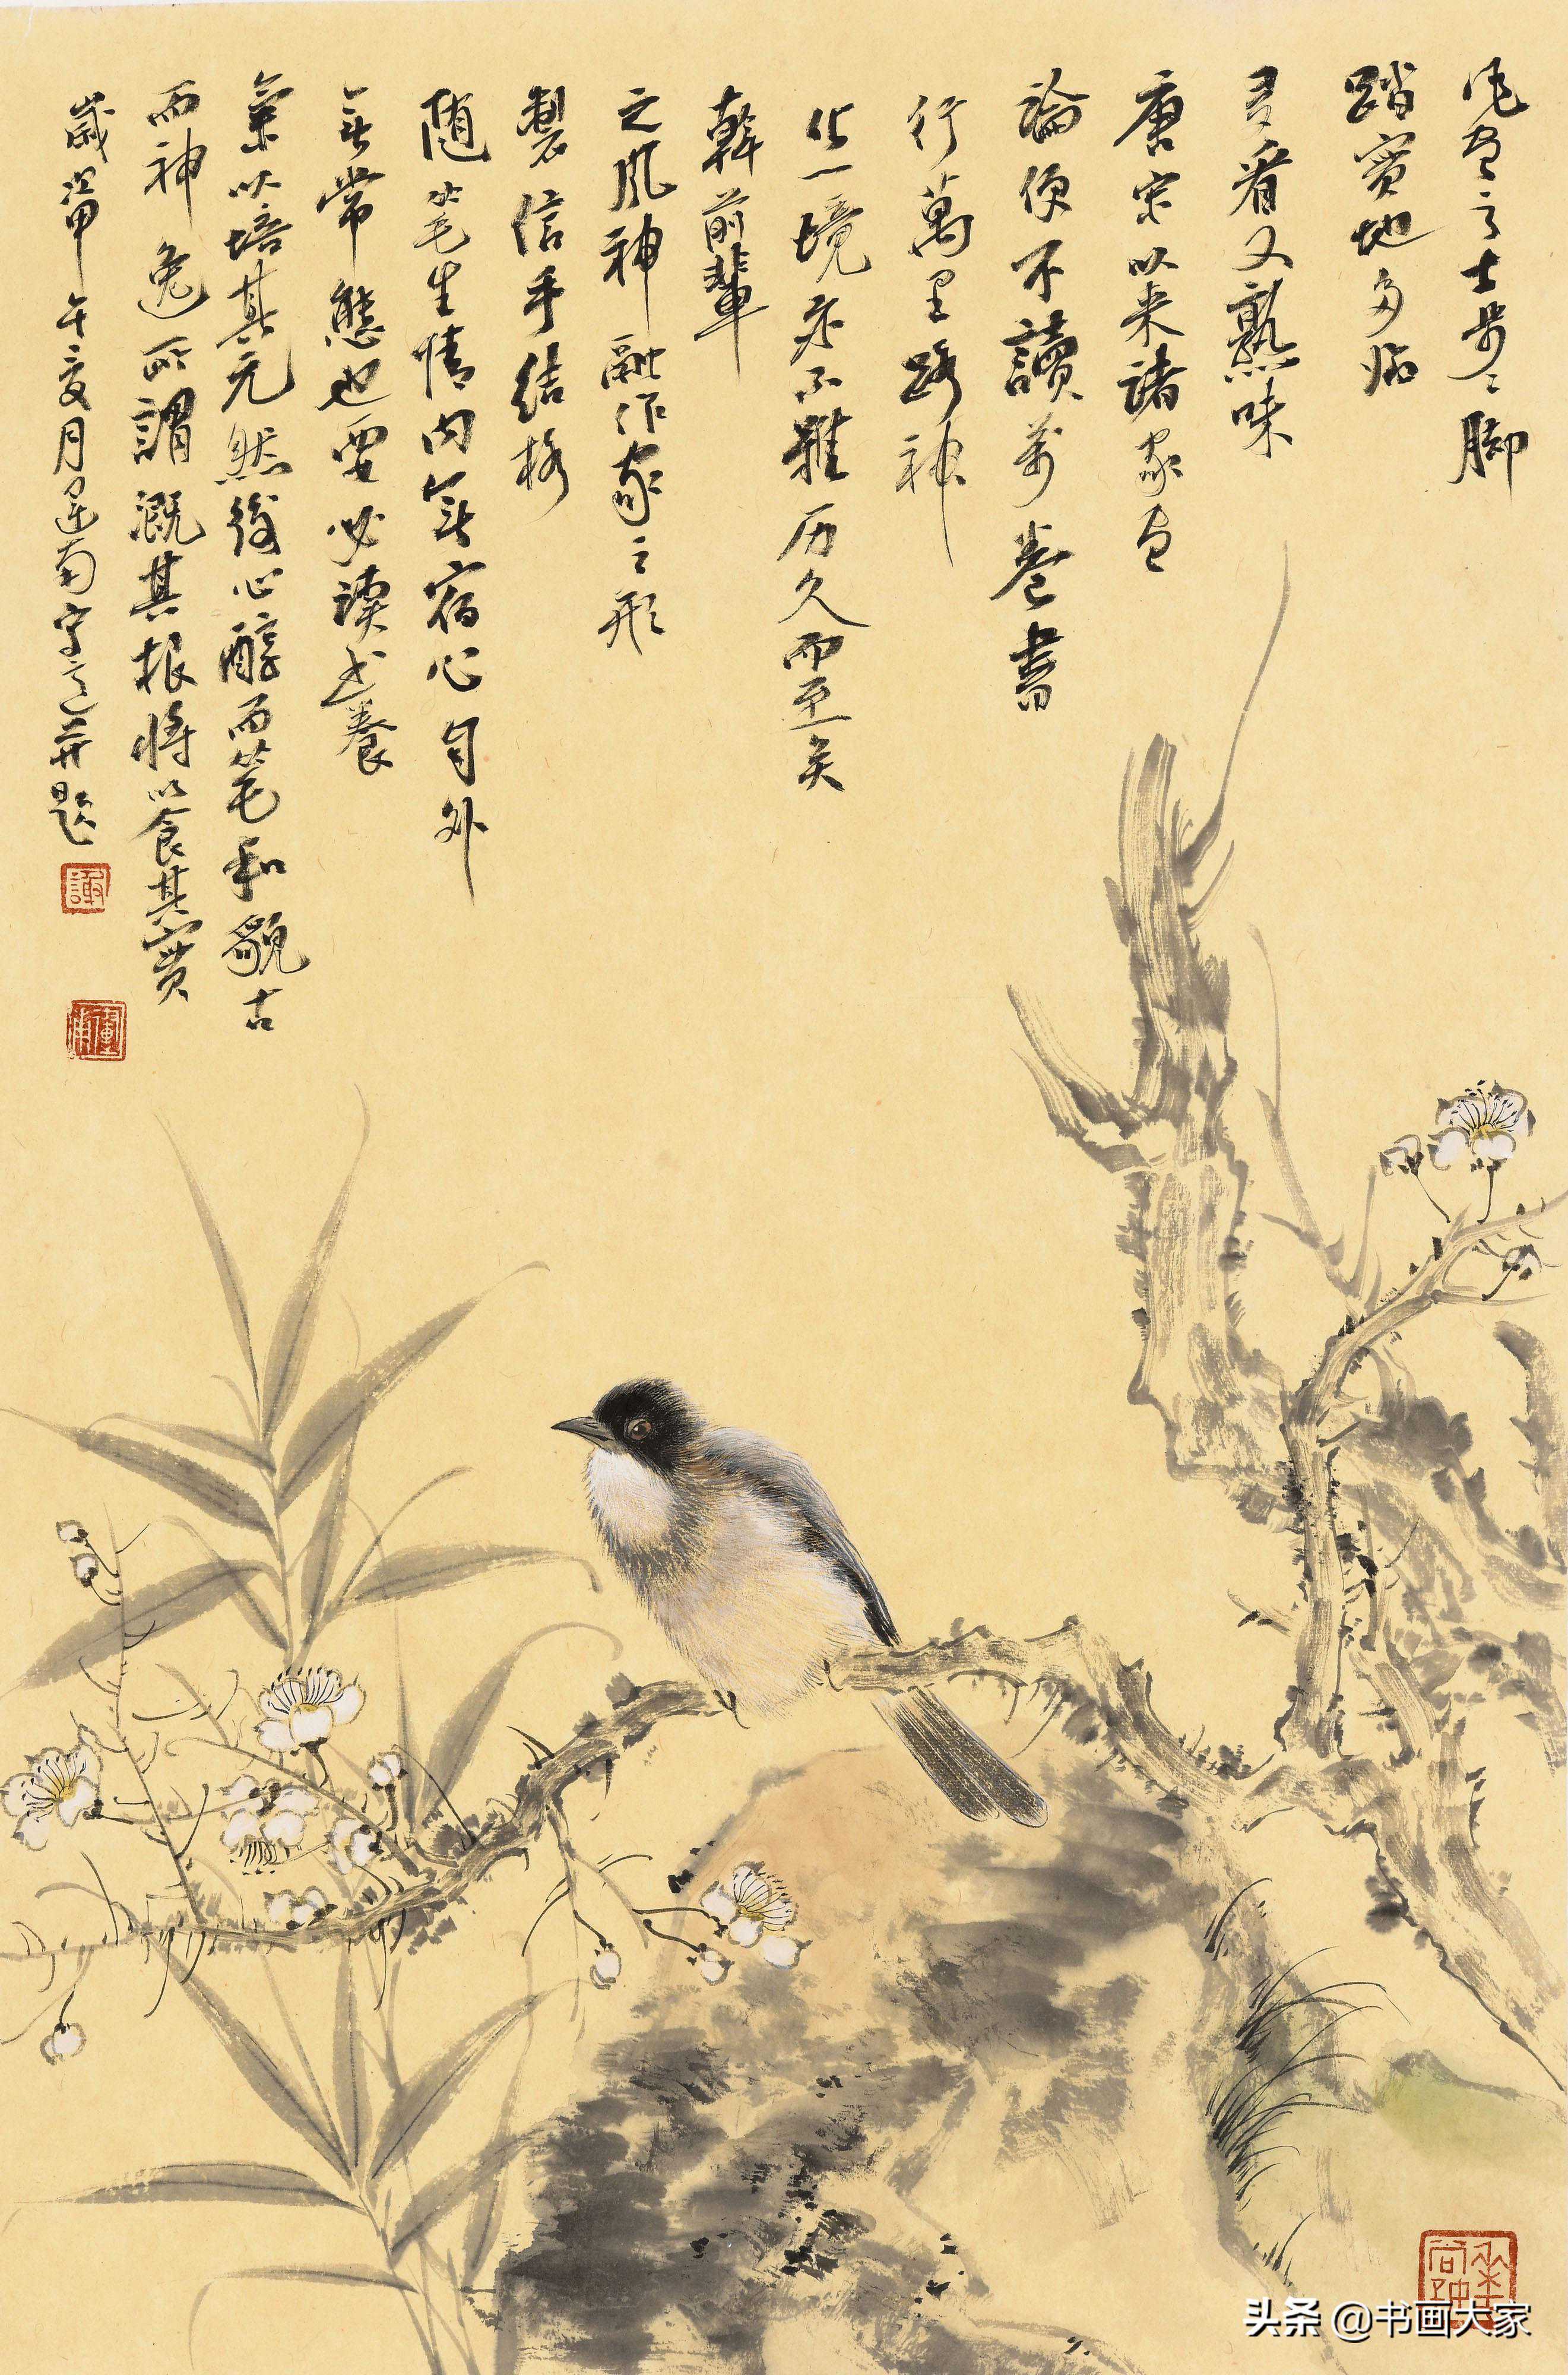 畫之士步〻脚
踏實地多臨
多看又熟味
唐宋以来諸家畫
論便不讀萬卷書
行萬里路神
化一境亦不難历久而至矣
斡前輩
之風神融作家之形
製信手結構
随笔生情内無宿心自外
無常態也要必讀书養
氣以培其元然後心醇而笔和貌古
而神逸所謂溉其根將以食其實
歲當甲午夏月南并題
謝
头条 @书画大家